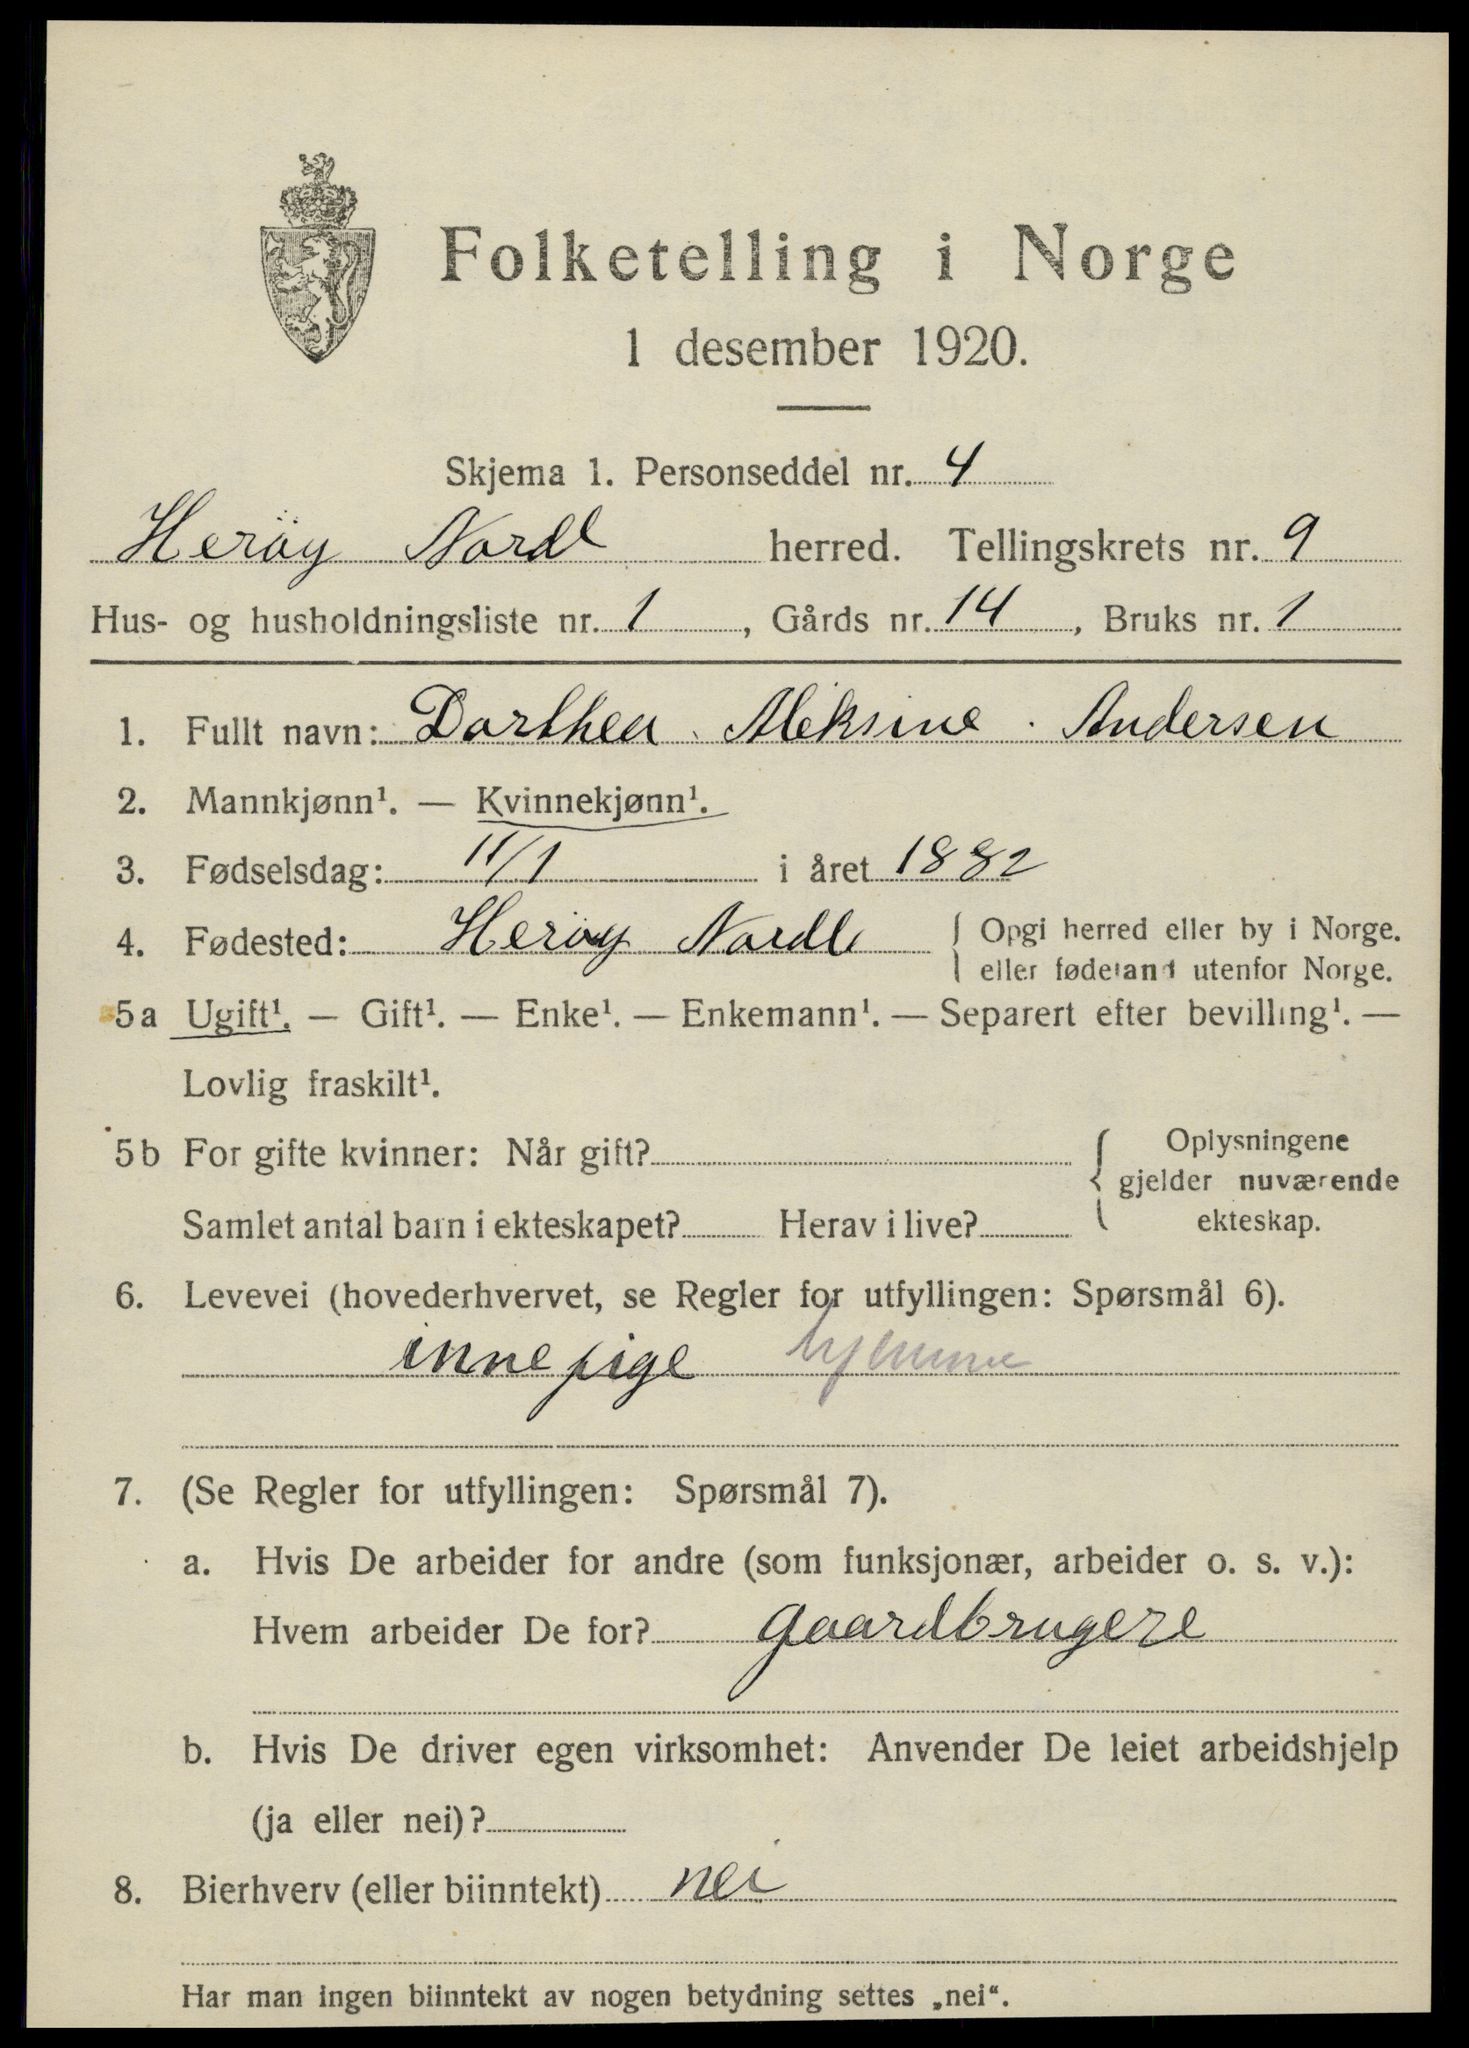 Folketelling i Norge
1 desember 1920.
Skjema 1. Personseddel nr. 4
Herøy Nordl herred. Tellingskrets nr. 9
Hus- og husholdningsliste nr. 1, Gårds nr. 14, Bruks nr. 1
1. Fullt navn: Dorthea Aleksine Andersen
2. Mannkjønn¹. — Kvinnekjønn¹.
3. Fødselsdag: 11/1 i året 1882
4. Fødested: Herøy Nordl { Opgi herred eller by i Norge.
eller fødeland utenfor Norge.
5a Ugift¹. — Gift¹. — Enke¹. — Enkemann¹. — Separert efter bevilling¹. —
Lovlig fraskilt¹.
5b For gifte kvinner: Når gift? { Oplysningene
gjelder nuværende
ekteskap.
Samlet antal barn i ekteskapet? Herav i live?
6. Levevei (hovederhvervet, se Regler for utfyllingen: Spørsmål 6).
innepige hjemme
7. (Se Regler for utfyllingen: Spørsmål 7).
a. Hvis De arbeider for andre (som funksjonær, arbeider o. s. v.):
Hvem arbeider De for? gaardbrugere
b. Hvis De driver egen virksomhet: Anvender De leiet arbeidshjelp
(ja eller nei)?
8. Bierhverv (eller biinntekt) nei
Har man ingen biinntekt av nogen betydning settes „nei“.